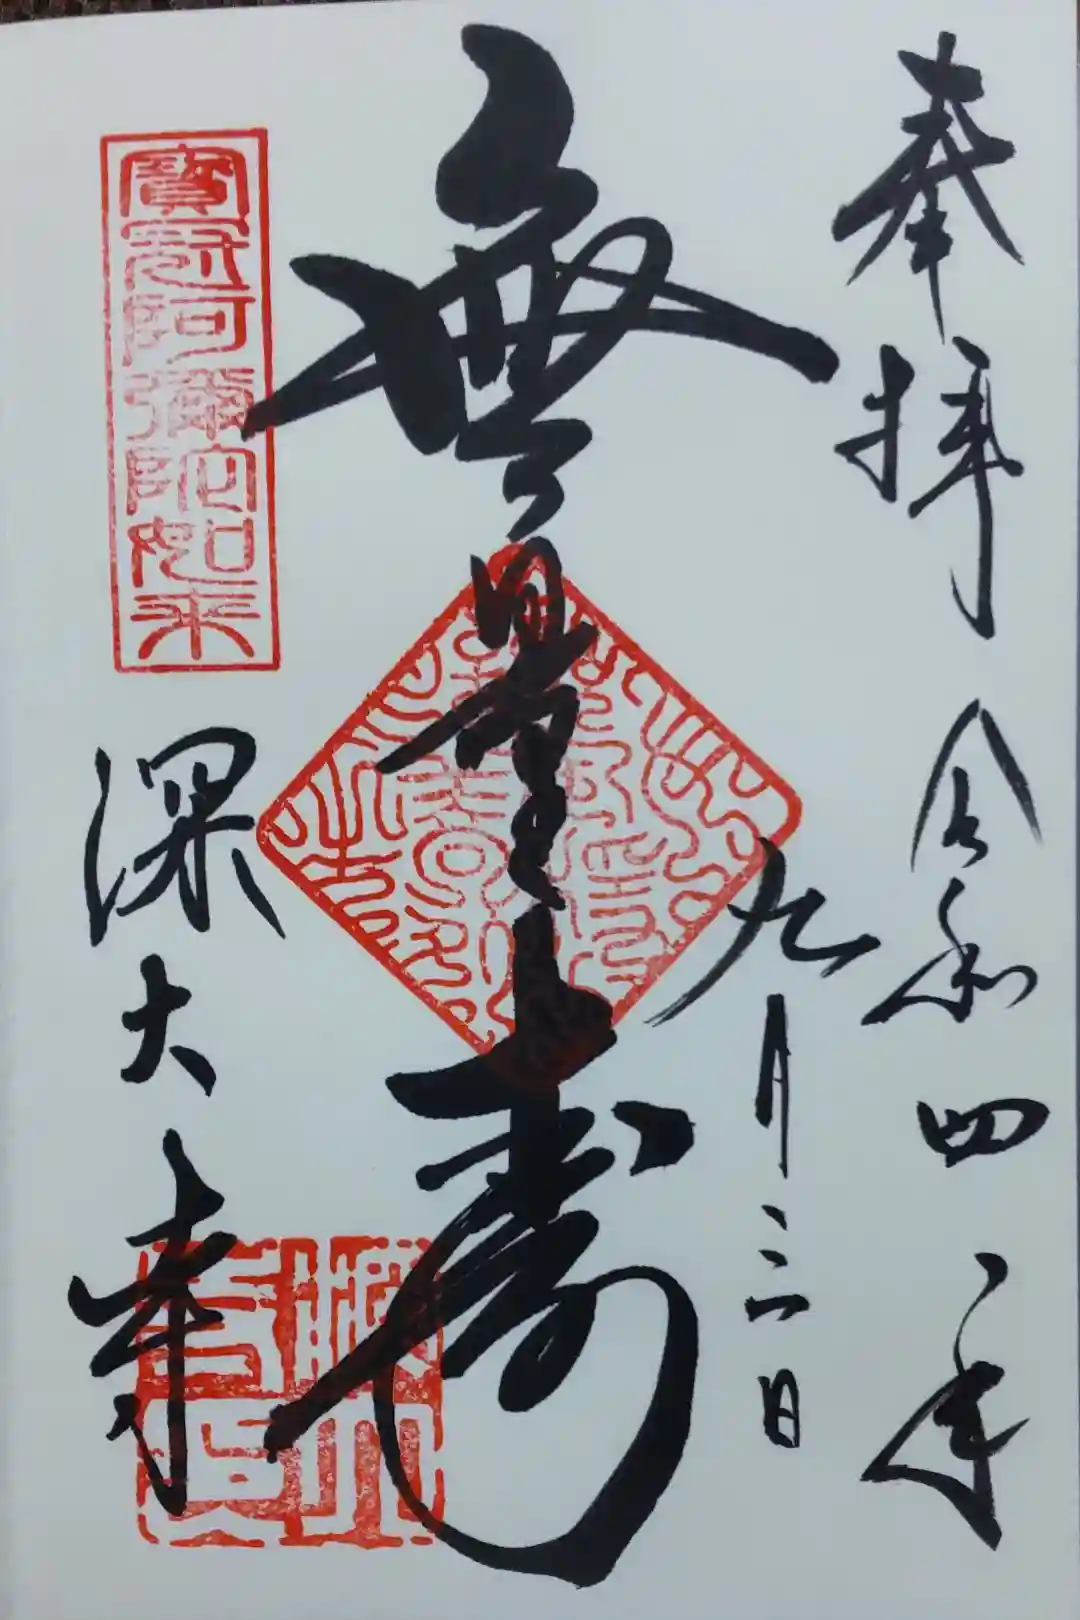 奉拝 令和四年
九月三日
無量寿
寶冠阿彌陀如来
深大寺